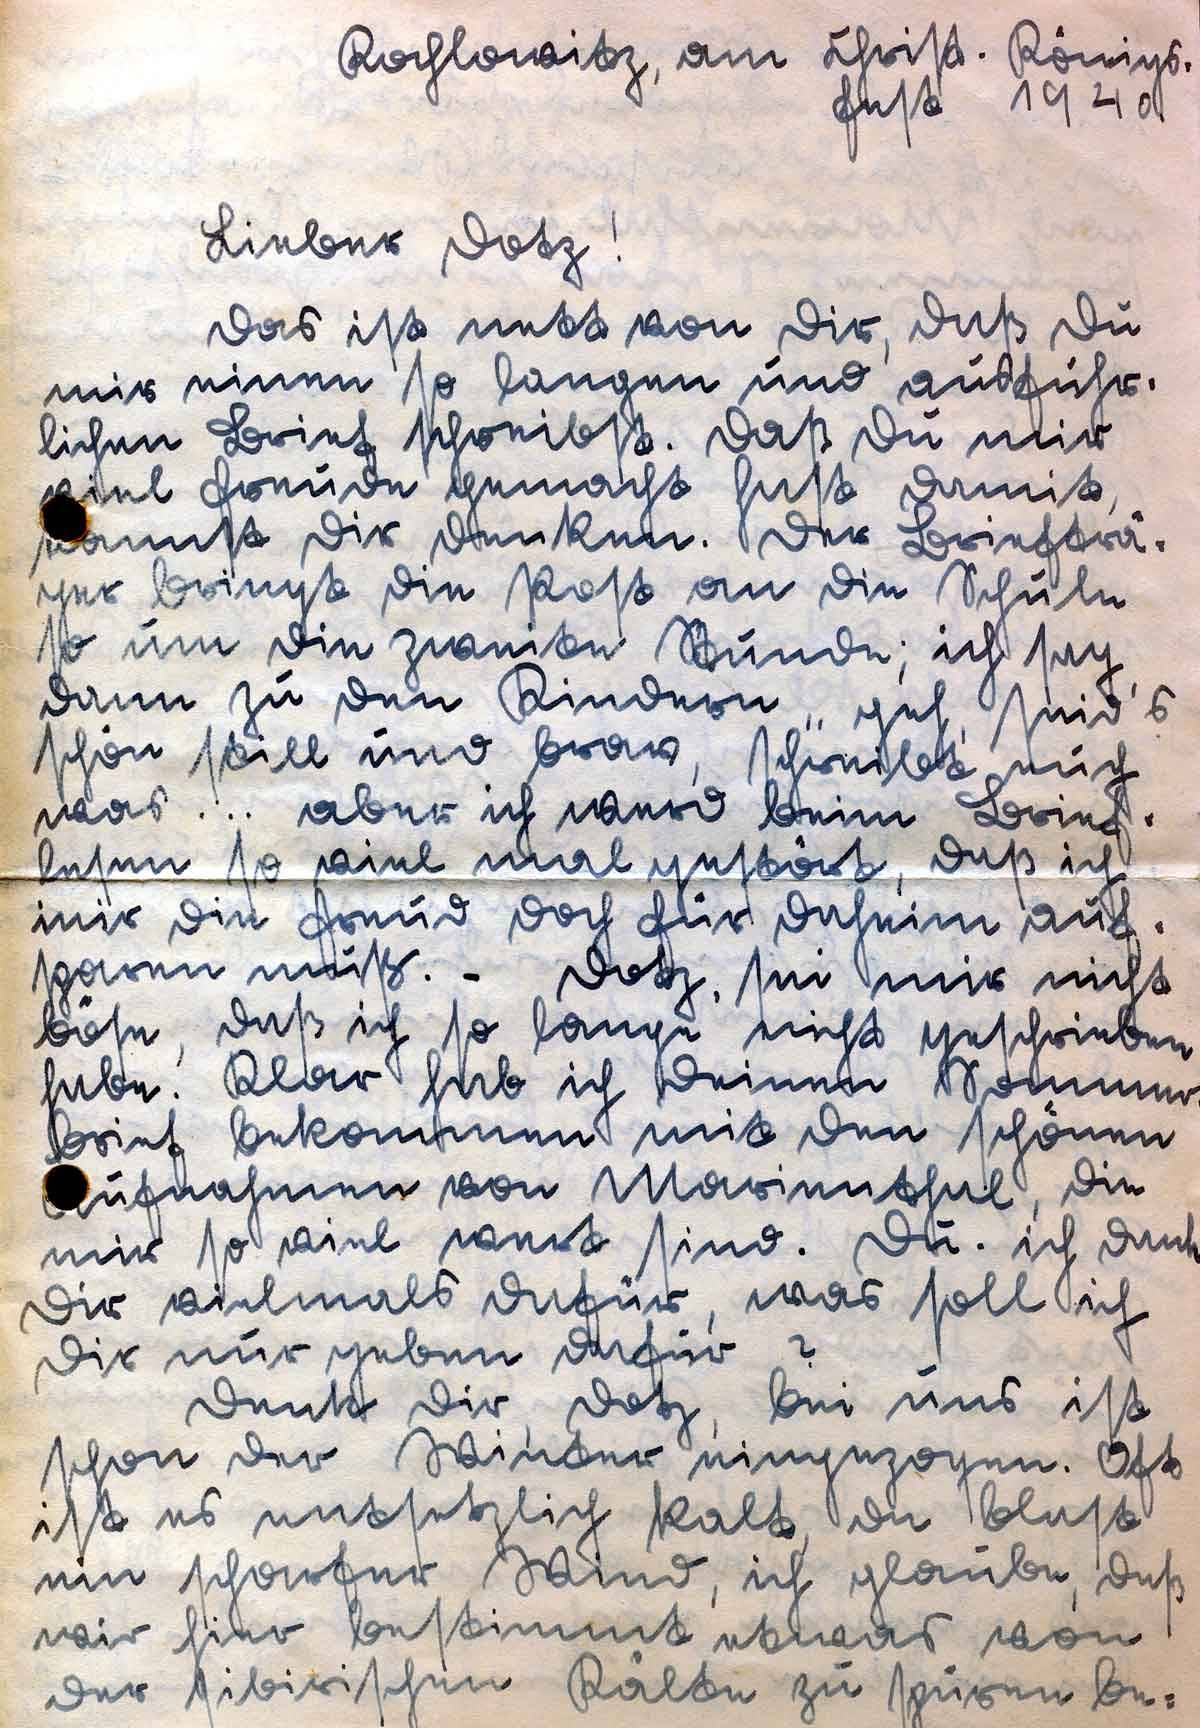 Kochlowitz, am Christ-Königs-
fest 1940
Lieber Dotz!
Das ist nett von Dir, daß Du
mir einen so langen und ausführ-
lichen Brief schreibst. Daß Du mir
viel Freude gemacht hast damit,
kannst Dir denken. Der Briefträ-
ger bringt die Post an die Schule
so um die zweite Stunde; ich sag
dann zu den Kindern „geh, seid's
schön still und brav, schreibt euch
was ... aber ich werd beim Brief-
lesen so viel mal gestört, daß ich
mir die Freud doch für daheim auf-
sparen muß. - Dotz, sei mir nicht
böse, daß ich so lange nicht geschrieben
habe. Klar hab ich Deinen Sommer-
brief bekommen mit den schönen
Aufnahmen von Marienthal, die
mir so viel wert sind. Du - ich dank
Dir vielmals dafür, was soll ich
Dir nur geben dafür?
Denk Dir, Dotz, bei uns ist
schon der Winter eingezogen. Oft
ist es entsetzlich kalt, da blast
ein scharfer Wind, ich glaube, daß
wir hier bestimmt etwas von
der sibirischen Kälte zu spüren be-